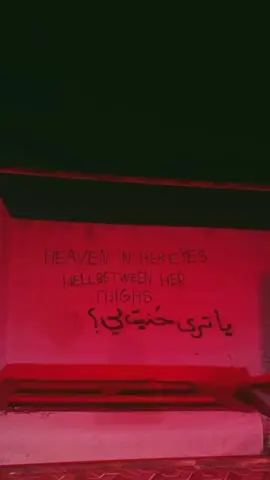 HEAVEN IN HER EYES
HELL BETWEEN HER
THIGHS
يا ترى حَنيت لي؟